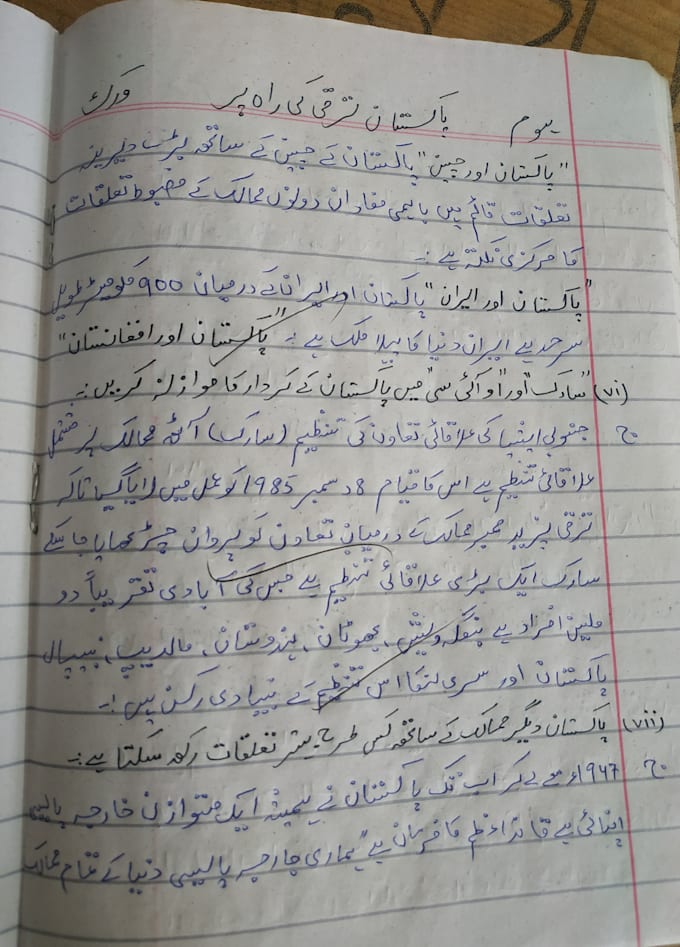 ہوم پاکستان ترقی کی راہ پر ورک
"پاکستان اور چین" پاکستان کے چین کے ساتھ بڑے دیرینہ
تعلقات قائم ہیں باہمی مفادات دونوں ممالک کے مضبوط تعلقات
کا مرکزی نکتہ ہے :۔
"پاکستان اور ایران" پاکستان اور ایران کے درمیان 900 کلومیٹر طویل
سرحد ہے ایران دنیا کا پہلا ملک ہے :۔ "پاکستان اور افغانستان"
(vi) "سارک" اور "او آئی سی" میں پاکستان کے کردار کا موازنہ کریں :۔
ج جنوبی ایشیا کی علاقائی تعاون کی تنظیم (سارک) آٹھ ممالک پر مشتمل
علاقائی تنظیم ہے اس کا قیام 8 دسمبر 1985 کو عمل میں لایا گیا تاکہ
ترقی پزیر ممبر ممالک کے درمیان تعاون کو پروان چڑھایا جا سکے
سارک ایک بڑی علاقائی تنظیم ہے جس کی آبادی تقریباً دو
ملین افراد ہے بنگلہ دیش، بھوٹان، ہندوستان، مالدیپ، نیپال
پاکستان اور سری لنکا اس تنظیم کے بنیادی رکن ہیں :۔
(vii) پاکستان دیگر ممالک کے ساتھ کس طرح بہتر تعلقات رکھ سکتا ہے :۔
ج 1947ء سے لے کر اب تک پاکستان نے ہمیشہ ایک متوازن خارجہ پالیسی
اپنائی ہے قائداعظم کا فرمان ہے "ہماری خارجہ پالیسی دنیا کے تمام ممالک